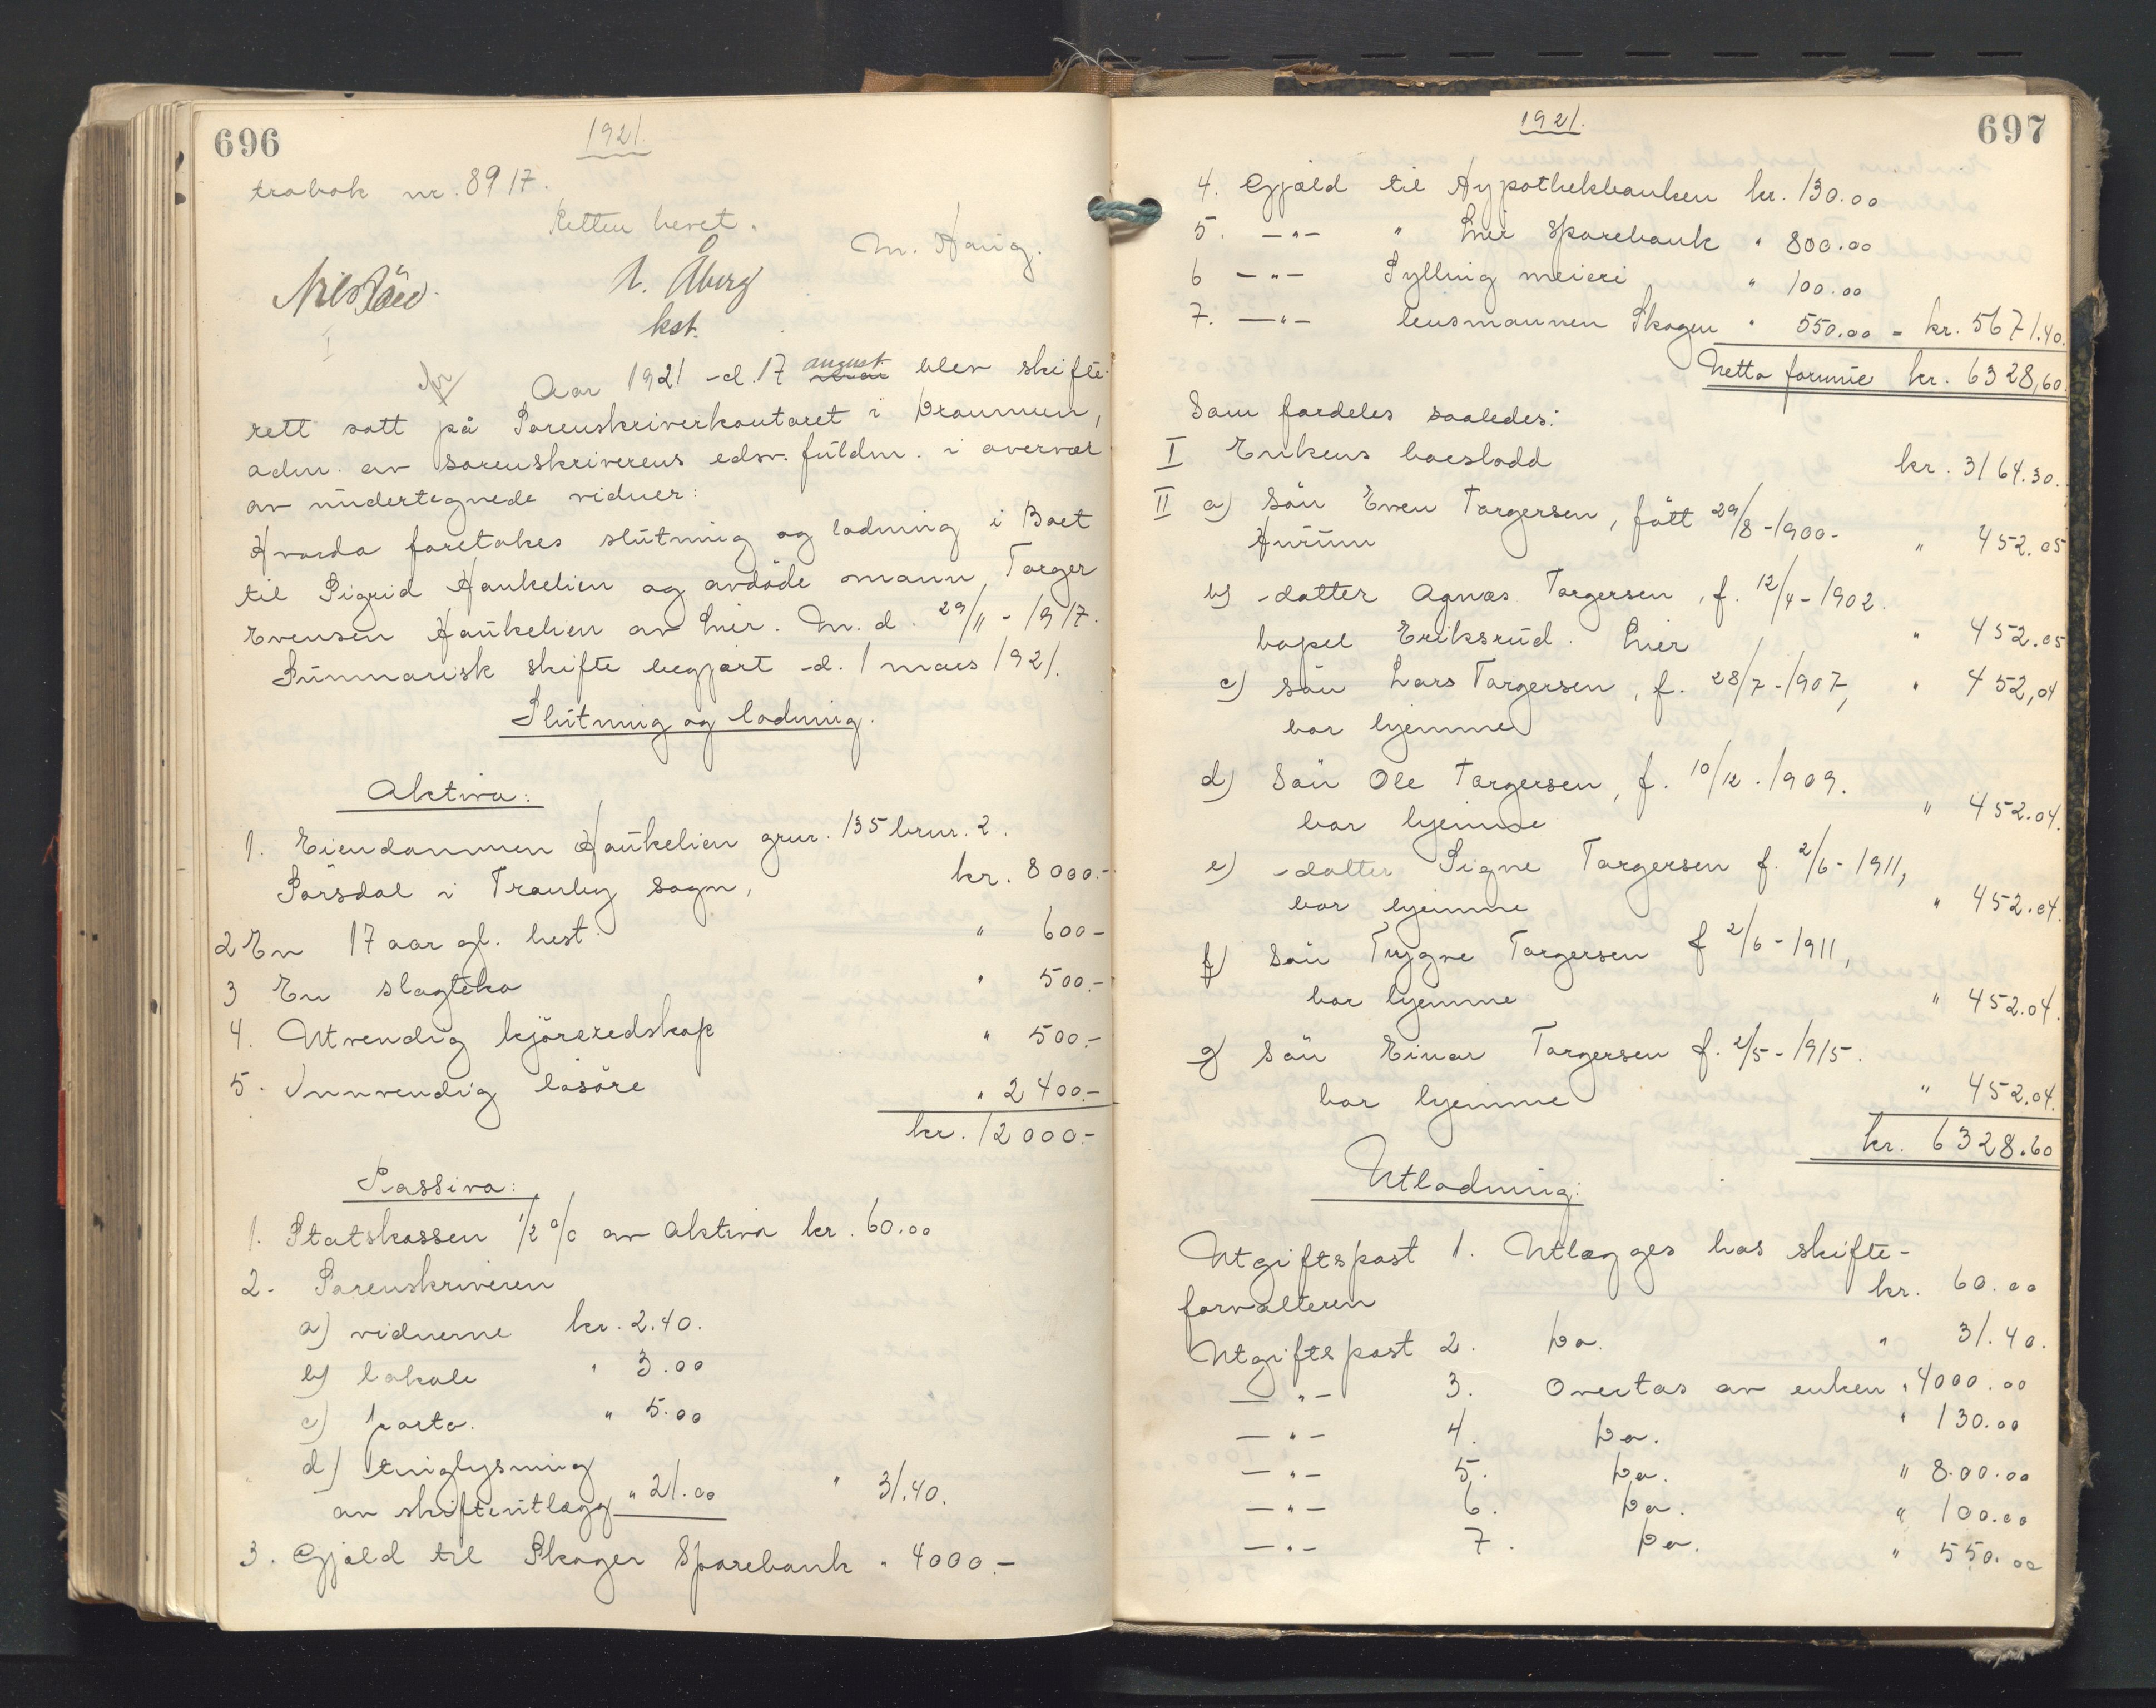 696
1921.
trabok nr. 8917.
Retten hevet.
M. Haug.
N. Åberg
kst.
Aar 1921 d. 17 august blev skifte-
rett satt på Sorenskriverkontoret i Drammen,
adm. av sorenskriverens edsv. fuldm. i overvær
av undertegnede vidner:
Hvorda foretakes slutning og lodning i Boet
til Sigrid Haukelien og avdöde mann, Torger
Evensen Haukelien av Lier. M. d. 29/11 - 1917.
Summarisk skifte begjært d. 1 mars 1921.
Slutning og lodning.
Aktiva:
1. Eiendommen Haukelien gnr. 135 brnr. 2.
Sörsdal i Tranby sogn, kr. 8000.-
2 En 17 aar gl. hest " 600-
3 En slagteko " 500.-
4. Utvendig kjöreredskap " 500.-
5. Innvendig lösöre " 2400.-
kr. 12000.-
Passiva:
1. Statskassen 1/2 % av aktiva kr. 60.00
2. Sorenskriveren
a) vidnerne kr. 2.40.
b) lokale " 3.00
c) porto. " 5.00
d) tinglysning
av skifteutlægg " 21.00 " 31.40.
3. Gjæld til Skoger Sparebank " 4000.-
697
1921.
4. Gjæld til Hypothekbanken kr. 130.00
5. -"- " Lier Sparebank " 800.00
6 -"- Sylling meieri " 100.00
7. -"- lensmannen Skogen " 550.00 - kr. 5671.40.
Netto formue kr. 6328,60.
Som fordeles saaledes:
I Enkens boeslodd kr. 3164.30.
II a) Sön Even Torgersen, fött 29/8 - 1900.
Hurum " 452.05
b) datter Agnes Torgersen, f. 12/4 - 1902.
bopel Eriksrud. Lier " 452.05
c) sön Lars Torgersen, f. 28/7 - 1907, " 452,04
bor hjemme
d) Sön Ole Torgersen, f. 10/12 - 1909.
bor hjemme " 452.04.
e) datter Signe Torgersen f. 2/6 - 1911,
bor hjemme " 452.04.
f) Sön Trygve Torgersen f 2/6 - 1911,
bor hjemme " 452.04.
g) sön Einar Torgersen f. 2/5 - 1915.
bor hjemme " 452.04.
kr. 6328.60
Utlodning:
Utgiftspost 1. Utlægges hos skifte-
forvalteren kr. 60.00
Utgiftspost 2. Do. " 31.40.
-"- 3. Overtas av enken " 4000.00
-"- 4. Do. " 130.00
-"- 5. Do. " 800.00
-"- 6. Do. " 100.00
-"- 7. Do. " 550.00